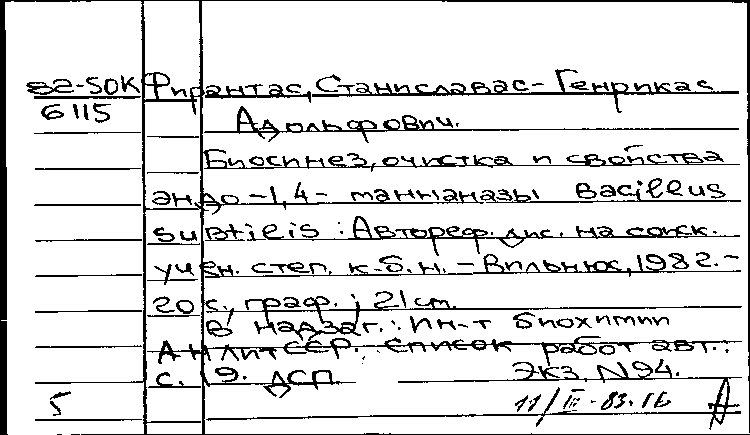 82-50К Фирантас, Станиславас-Генрикас
6115 Адольфович.
Биосинез, очистка и свойства
эндо-1,4-маннаназы Bacillus
subtilis : Автореф. дис. на соиск.
учен. степ. к.б.н. - Вильнюс, 1982. -
20 с., граф. ; 21 см.
В надзаг.: Ин-т биохимии
АН ЛитССР. Список работ авт.:
с. 19. ДСП. Экз. N94.
5 11/III-83. A